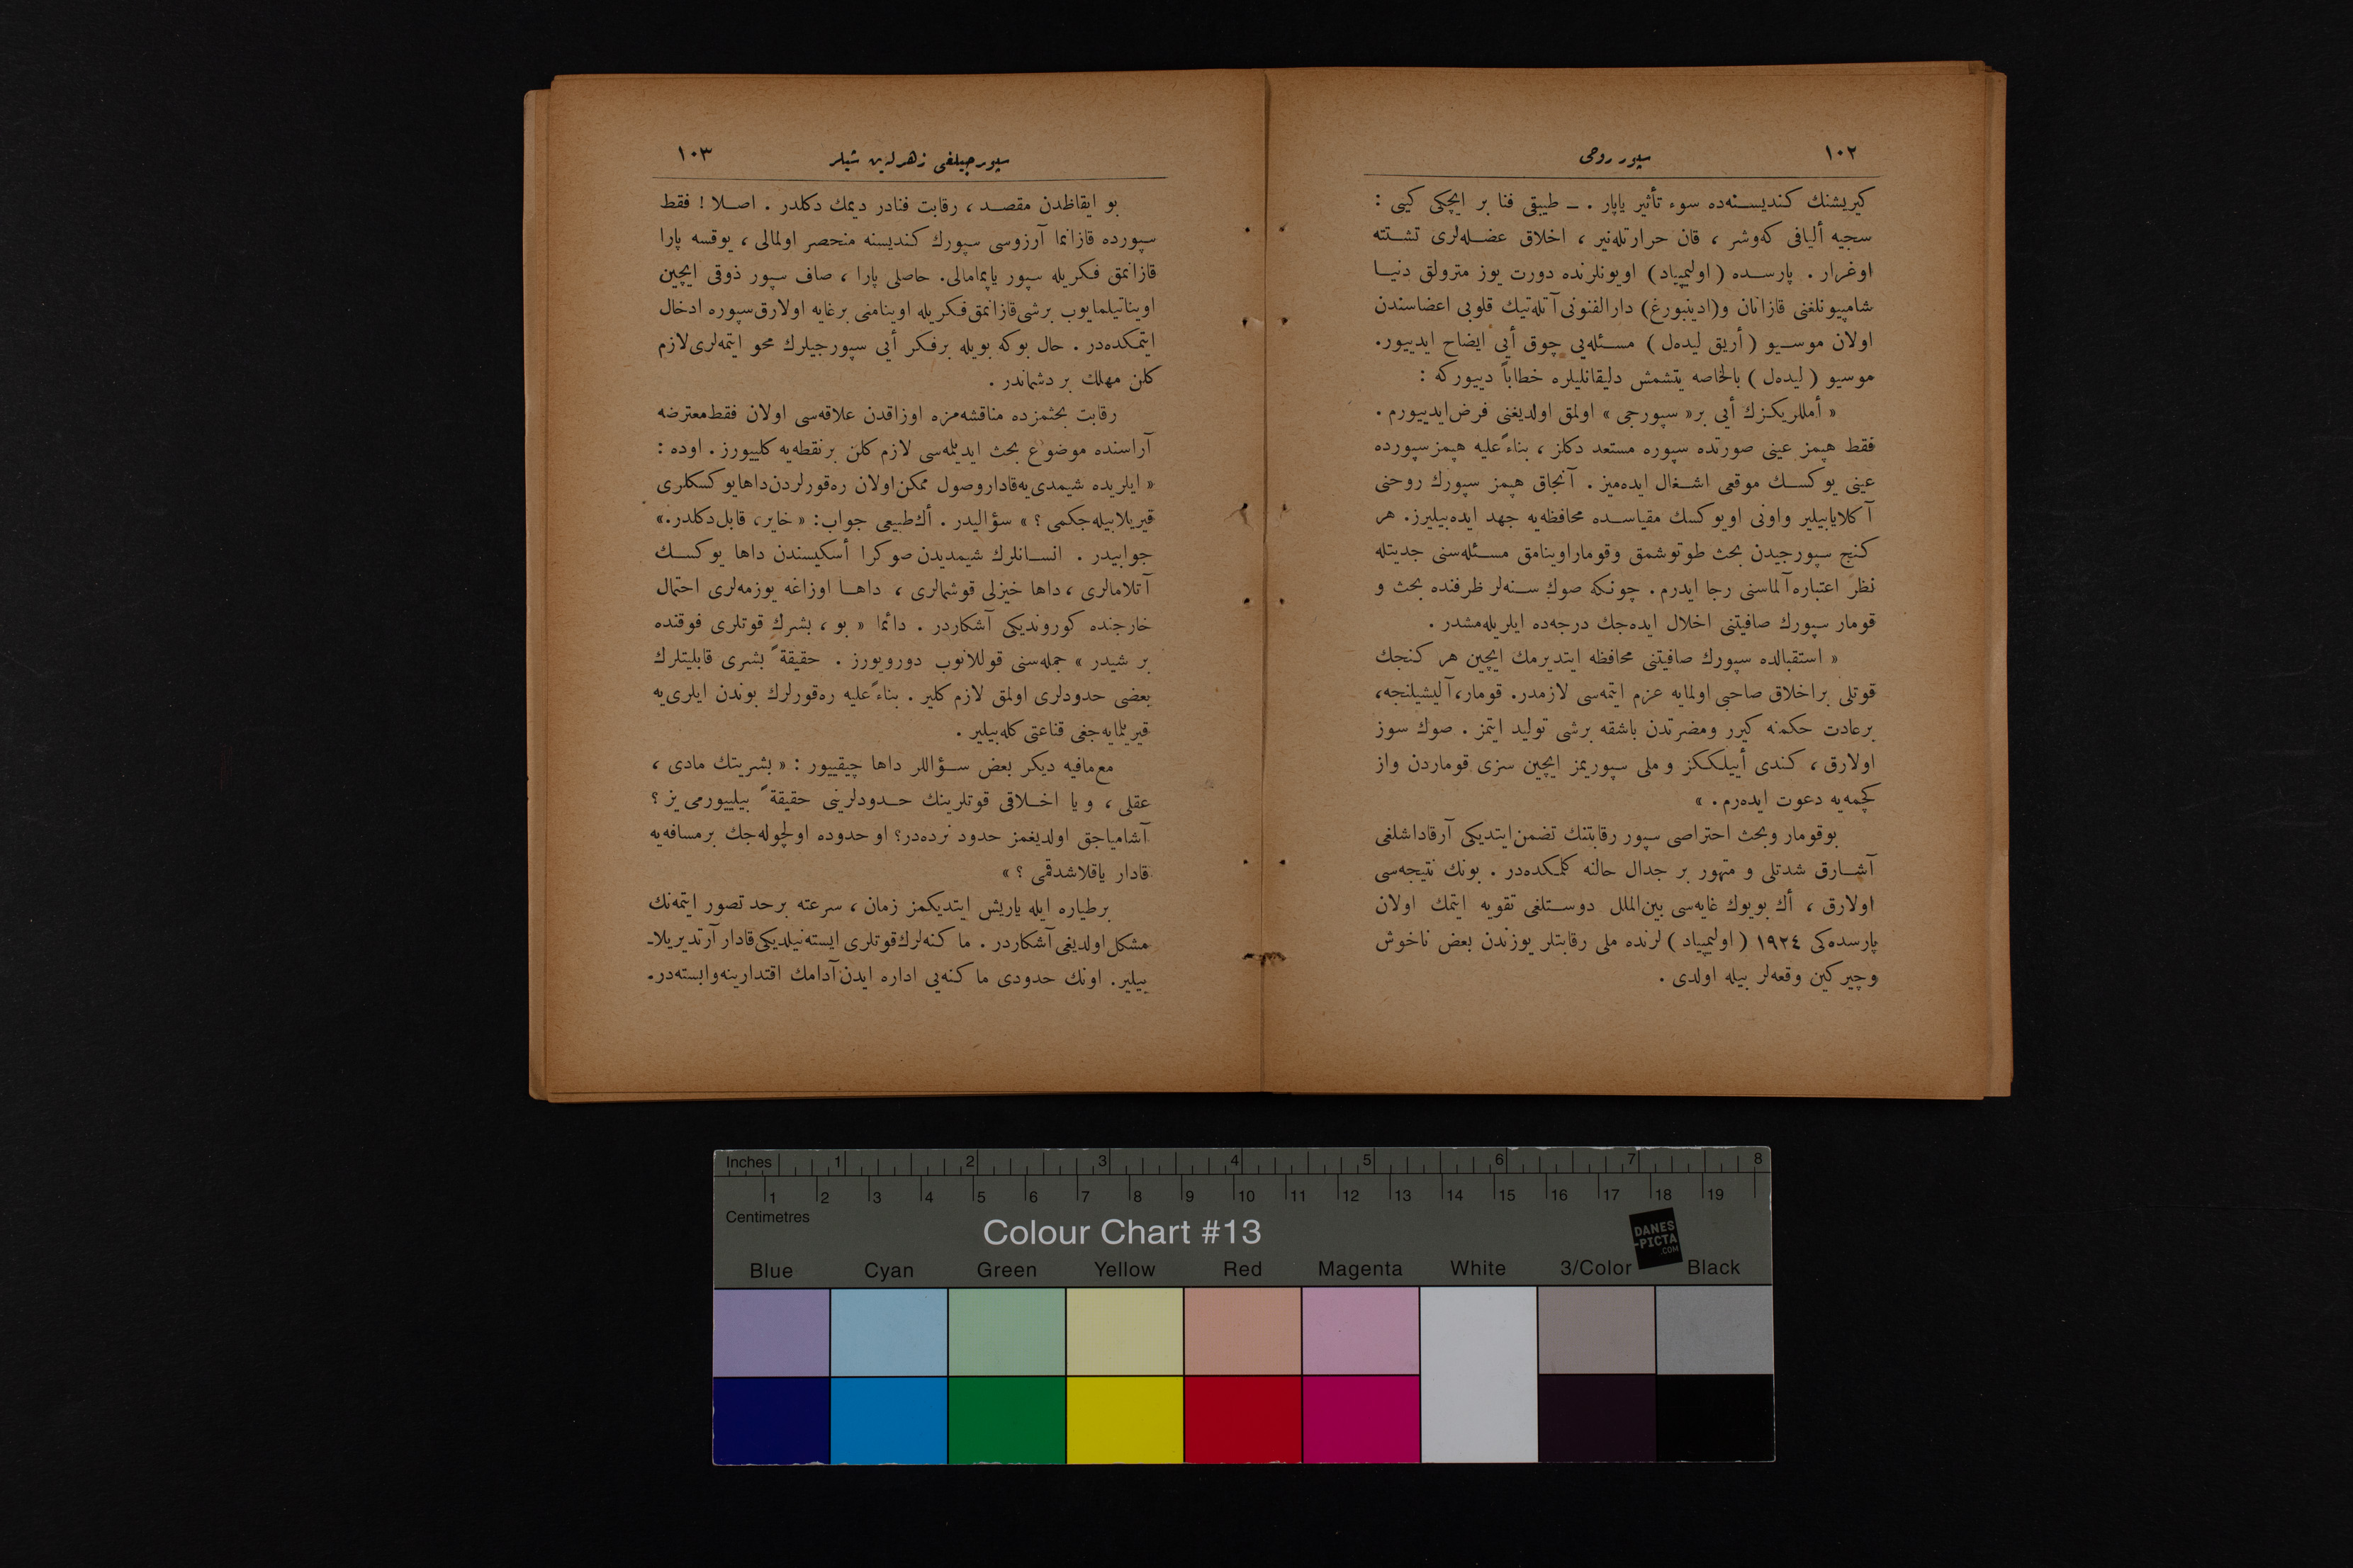 ١٠٢
سپور روحی
كیریشنك كندیسـنه‌ده سوء تأثیر یاپار . ــ طیبقی فنا بر ایچكی كیبی :
سجیه ألیافی كه‌وشر ، قان حرارتله‌نیر ، اخلاق عضـله‌لری تشـتته
اوغرار . پارســده ( اولیمپیاد ) اویونلرنده دورت یوز مترولق دنیـا
شامپیونلغنی قازانان و(ادینبورغ) دارالفنونی آتله‌تیك قلوبی اعضاسندن
اولان موسـیو ( أریق لیده‌ل ) مسـئله‌یی چوق أیی ایضاح ایدییور.
موسیو ( لیده‌ل ) بالخاصه یتشمش دلیقانلیلره خطاباً دییوركه :
« أمللریكـزك أیی بر« سپورجی » اولمق اولدیغنی فرض ایدییورم .
فقط هپمز عینی صورتده سپوره مستعد دكلز ، بناءً علیه هپمز سپورده
عینی یوكسـك موقعی اشـغال ایده‌میز . آنجاق هپمز سپورك روحنی
آكلایابیلیر واونی اویوكسك مقیاسـده محافظه‌یه جهد ایده‌بیلیرز. هر
كنج سپورجیدن بحث طوتوشمق وقوماراوینامق مسـئله‌سنی جدیتله
نظر اعتباره آلماسنی رجا ایدرم . چونكه صوك سـنه‌لر ظرفنده بحث و
قومار سپورك صافیتنی اخلال ایده‌جك درجه‌ده ایلریله‌مشدر .
« استقبالده سپورك صافیتنی محافظه ایتدیرمك ایچین هر كنجك
قوتلی براخلاق صاحبی اولمایه عزم ایتمه‌سی لازمدر. قومار، آلیشیلنجه،
برعادت حكمنه كیرر ومضرتدن باشقه برشی تولید ایتمز . صوك سوز
اولارق ، كندی أییلككز و ملی سپوریمز ایچین سزی قوماردن واز
كچمه‌یه دعوت ایده‌رم . »
بوقومار وبحث احتراصی سپور رقابتنك تضمن ایتدیكی آرقاداشلغی
آشـارق شدتلی و متهور بر جدال حالنه كلمكده‌در . بونك نتیجه‌سی
اولارق ، أك بویوك غایه‌سی بین‌الملل دوسـتلغی تقویه ایتمك اولان
پارسده‌كی ١٩٢٤ ( اولیمپیاد ) لرنده ملی رقابتلر یوزندن بعض ناخوش
وچیركین وقعه‌لر بیله اولدی .
سپورجیلغی زهرله‌ین شیلر
١٠٣
بو ایقاظدن مقصـد ، رقابت فنادر دیمك دكلدر . اصـلا ! فقط
سپورده قازانما آرزوسی سپورك كندیسنه منحصر اولمالی ، یوقسه پارا
قازانمق فـكریله سپور یاپمامالی. حاصلی پارا ، صاف سپور ذوقی ایچین
اویناتیلمایوب برشی قازانمق فـكریله اوینامنی برغایه اولارق سپوره ادخال
ایتمـكده‌در . حال بوكه بویله برفـكر أیی سپورجیلرك محو ایتمه‌لری لازم
كلن مهلك بر دشماندر .
رقابت بحثمزده مناقشه‌مزه اوزاقدن علاقه‌سی اولان فقط معترضه
آراسنده موضوع بحث ایدیلمه‌سی لازم كلن برنقطه‌یه كلییورز . اوده :
« ایلریده شیمدی‌یه قادار وصول ممكن اولان ره‌قورلردن داها یوكسكلری
قیریلابیله‌جكمی ؟ » سؤالیدر . أك طبیعی جواب: « خایر، قابل دكلدر.»
جوابیدر . انسـانلرك شیمدیدن صوكرا أسكیسندن داها یوكسـك
آتلامالری ، داها خیزلی قوشمالری ، داهـا اوزاغه یوزمه‌لری احتمال
خارجنده كوروندیكی آشكاردر . دائما « بو ، بشرك قوتلری فوقنده
بر شیدر » جمله‌سنی قوللانوب دورویورز . حقیقةً بشری قابلیتلرك
بعضی حدودلری اولمق لازم كلیر . بناءً علیه ره‌قورلرك بوندن ایلری‌یه
قیریلمایه‌جغی قناعتی كله‌بیلیر .
مع‌مافیه دیكر بعض سـؤاللر داها چیقییور : « بشریتك مادی ،
عقلی ، و یا اخـلاقی قوتلرینك حـدودلرینی حقیقةً بیلییورمی‌یز ؟
آشامیاجق اولدیغمز حدود نرده‌در؟ او حدوده اولچوله‌جك برمسافه‌یه
قادار یاقلاشدقمی ؟ »
برطیاره ایله یاریش ایتدیكمز زمان ، سرعته برحد تصور ایتمه‌نك
مشكل اولدیغی آشكاردر . ماكنه‌لرك قوتلری ایسته‌نیلدیكی قادار آرتدیریلا-
بیلیر. اونك حدودی ماكنه‌یی اداره ایدن آدامك اقتدارینه وابسته‌در.
Inches 1 2 3 4 5 6 7 8
1 2 3 4 5 6 7 8 9 10 11 12 13 14 15 16 17 18 19
Centimetres
Colour Chart #13
DANES
-PICTA
.COM
Blue Cyan Green Yellow Red Magenta White 3/Color Black